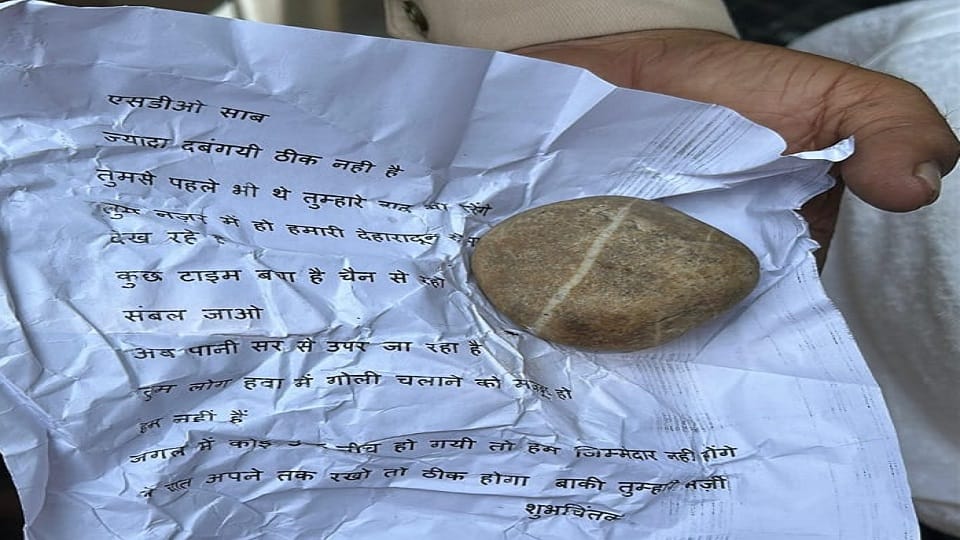 एसडीओ साब
ज्यादा दबंगयी ठीक नही है
तुमसे पहले भी थे तुम्हारे
तुम नजर में हो हमारी देहारादून
देख रहे
कुछ टाइम बचा है चैन से रहो
संबल जाओ
अब पानी सर से उपर जा रहा है
तुम लोग हवा में गोली चलाने को हो
हम नहीं हैं
जंगल में कोइ नीच हो गयी तो हम जिम्मेदार नही होंगे
बात अपने तक रखो तो ठीक होगा बाकी तुम्हारी मर्ज़ी
शुभचिंतक